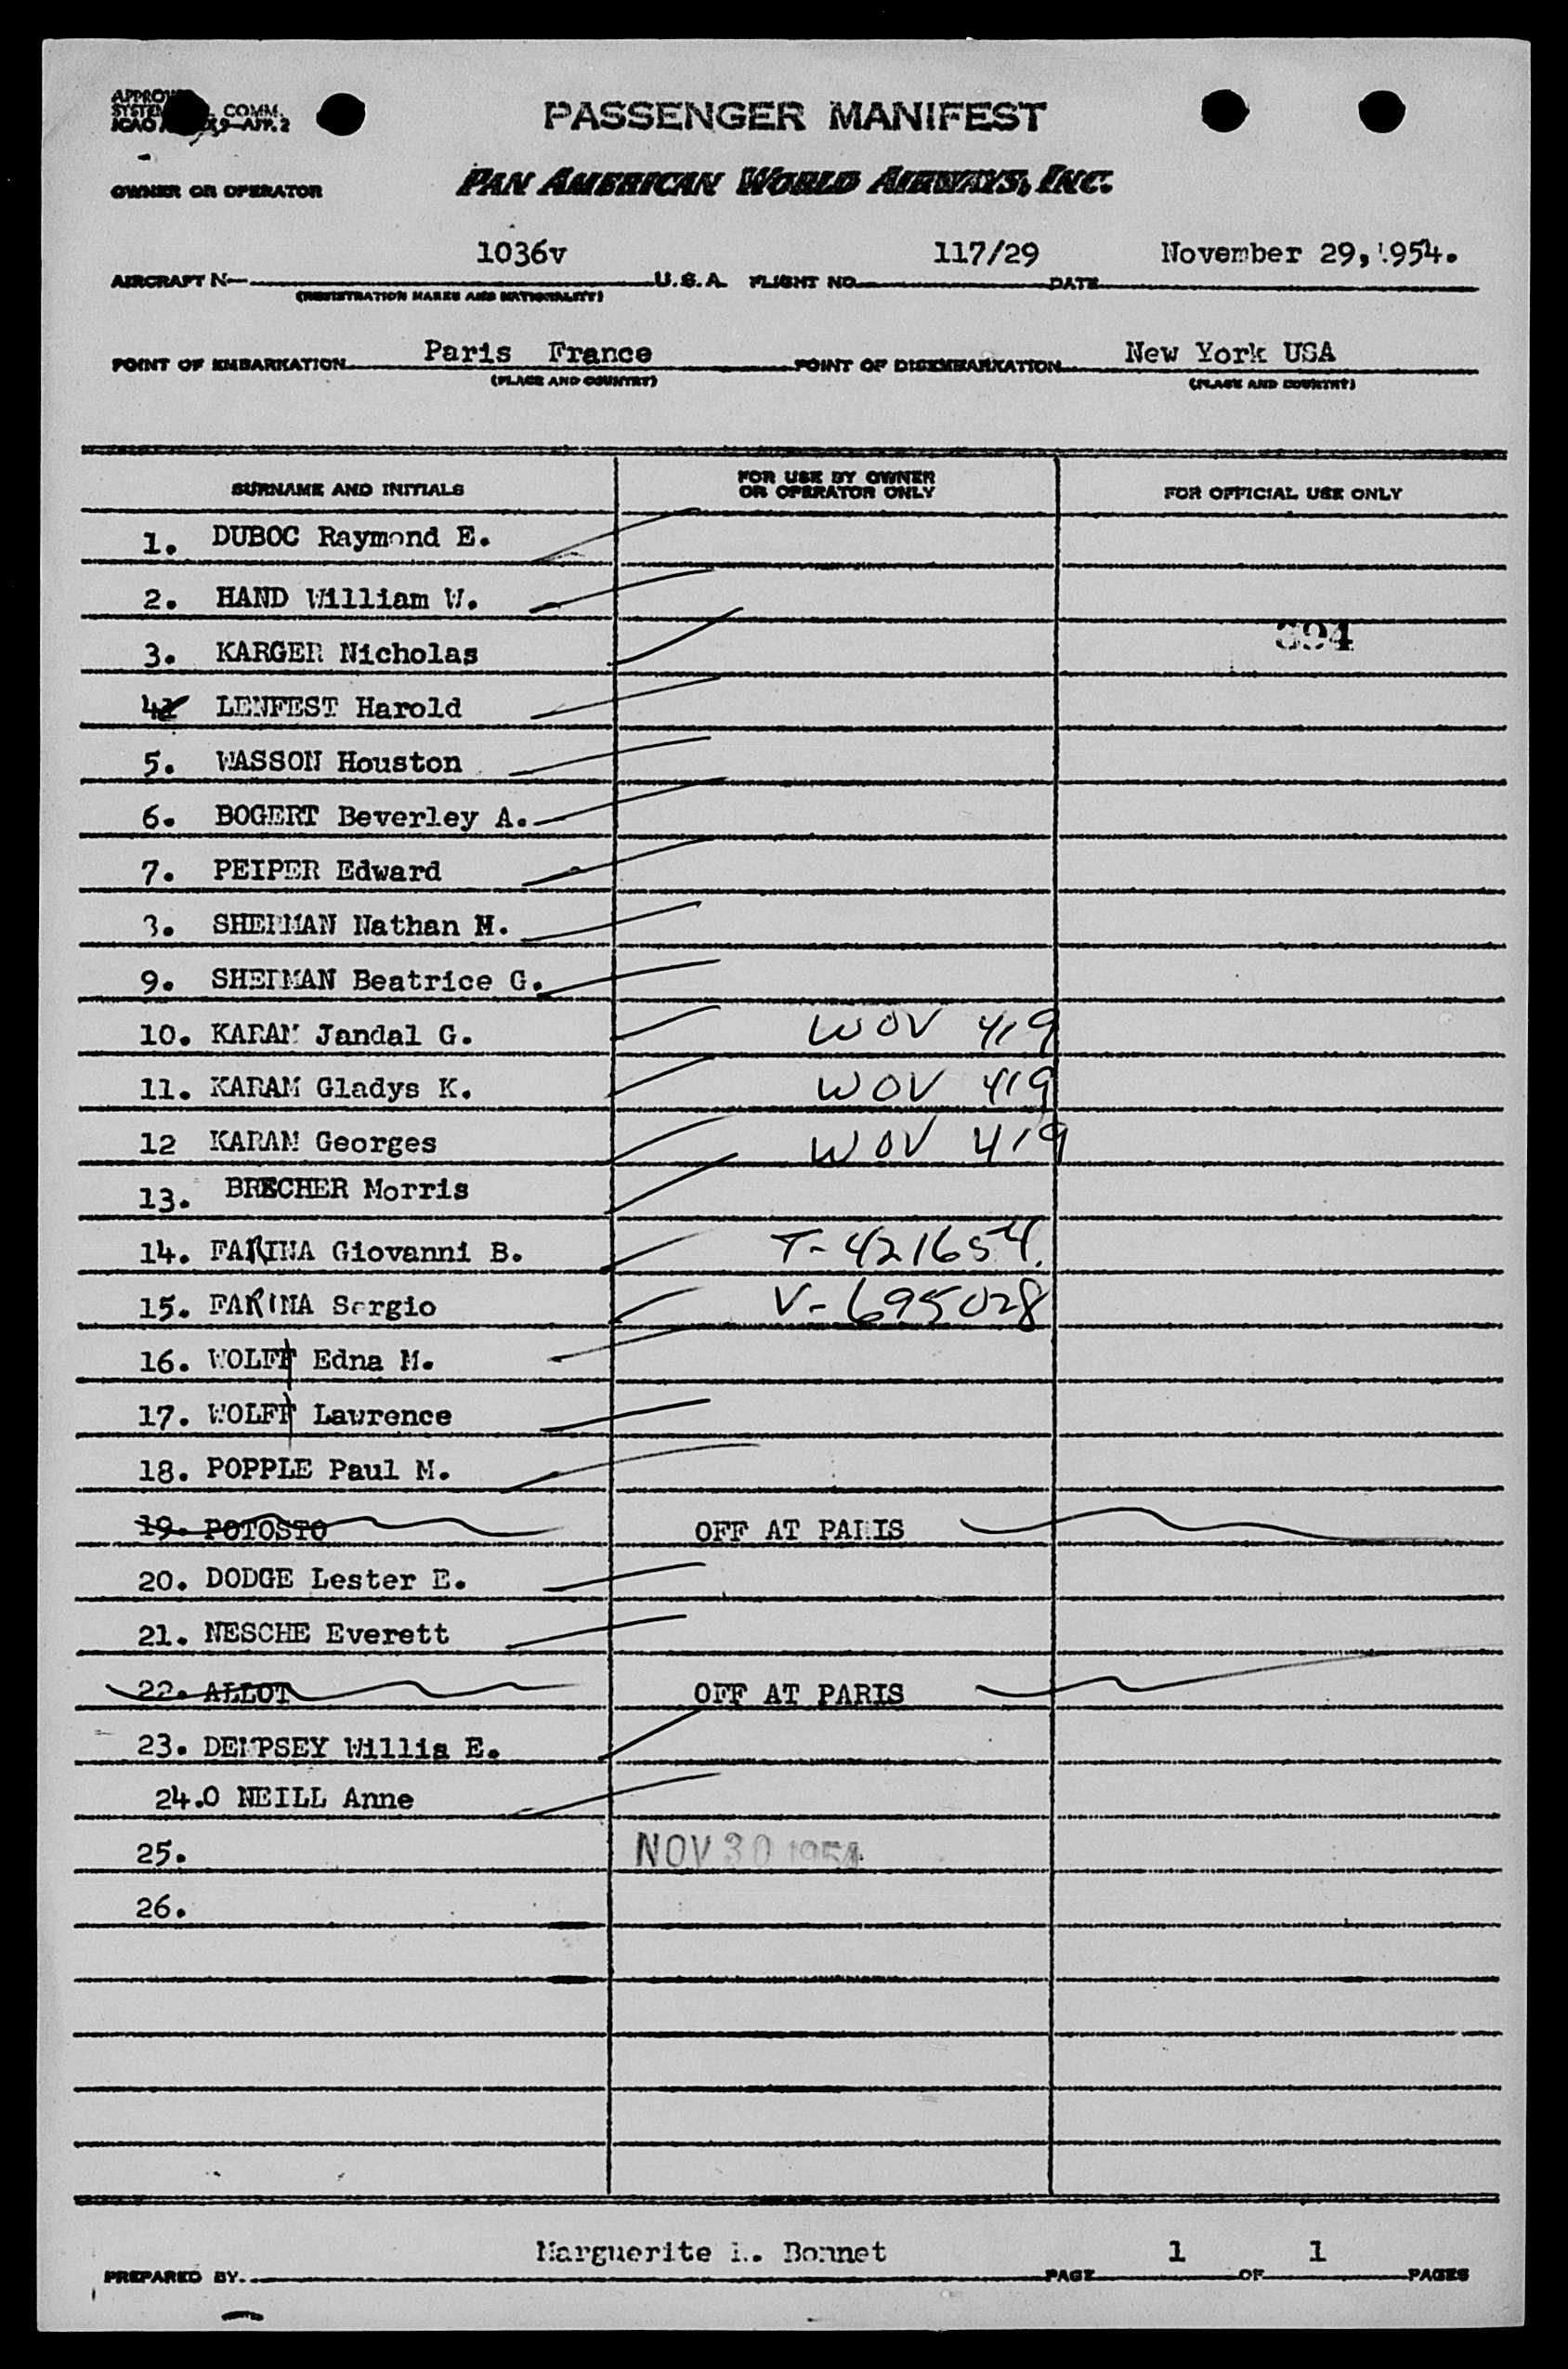 PASSENGER MANIFEST
COMM.
OWNER OR OPERATOR PAN AMERICAN WORLD AIRWAYS, INC.
AIRCRAFT N— 1036v U.S.A. FLIGHT NO. 117/29 DATE November 29, 1954.
(REGISTRATION MARKS AND NATIONALITY)
POINT OF EMBARKATION Paris France POINT OF DISEMBARKATION New York USA
(PLACE AND COUNTRY) (PLACE AND COUNTRY)
SURNAME AND INITIALS FOR USE BY OWNER OR OPERATOR ONLY FOR OFFICIAL USE ONLY
1. DUBOC Raymond E.
2. HAND William W.
394
3. KARGER Nicholas
4. LENFEST Harold
5. WASSON Houston
6. BOGERT Beverley A.
7. PEIPER Edward
8. SHERMAN Nathan M.
9. SHERMAN Beatrice G.
10. KARAM Jandal G. WOV 419
11. KARAM Gladys K. WOV 419
12 KARAM Georges WOV 419
13. BRECHER Morris
14. FARINA Giovanni B. T-421654.
15. FARINA Sergio V-695028
16. WOLFF Edna M.
17. WOLFF Lawrence
18. POPPLE Paul M.
19. POTOSTO OFF AT PARIS
20. DODGE Lester E.
21. NESCHE Everett
22. ALLOT OFF AT PARIS
23. DEMPSEY Willis E.
24.O NEILL Anne
25. NOV 30 1954
26.
PREPARED BY. Marguerite Bonnet PAGE 1 OF 1 PAGES